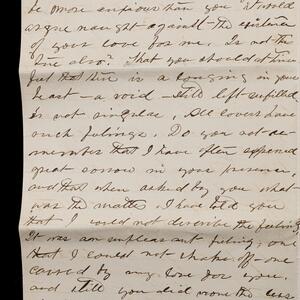 be more anxious than you. It would
argue naught against the existence
of your love for me. Is not this
true also? That you should at times
feel that there is a longing in your
heart – a void – still left unfilled
is not singular. All lovers have
such feelings. Do you not re-
member that I have often expressed
great sorrow in your presence,
and that when asked by you what
was the matter, I have told you
that I could not describe the feeling.
It was an unpleasant feeling, one
that I could not shake off – one
caused by my love for you,
and still you did more the